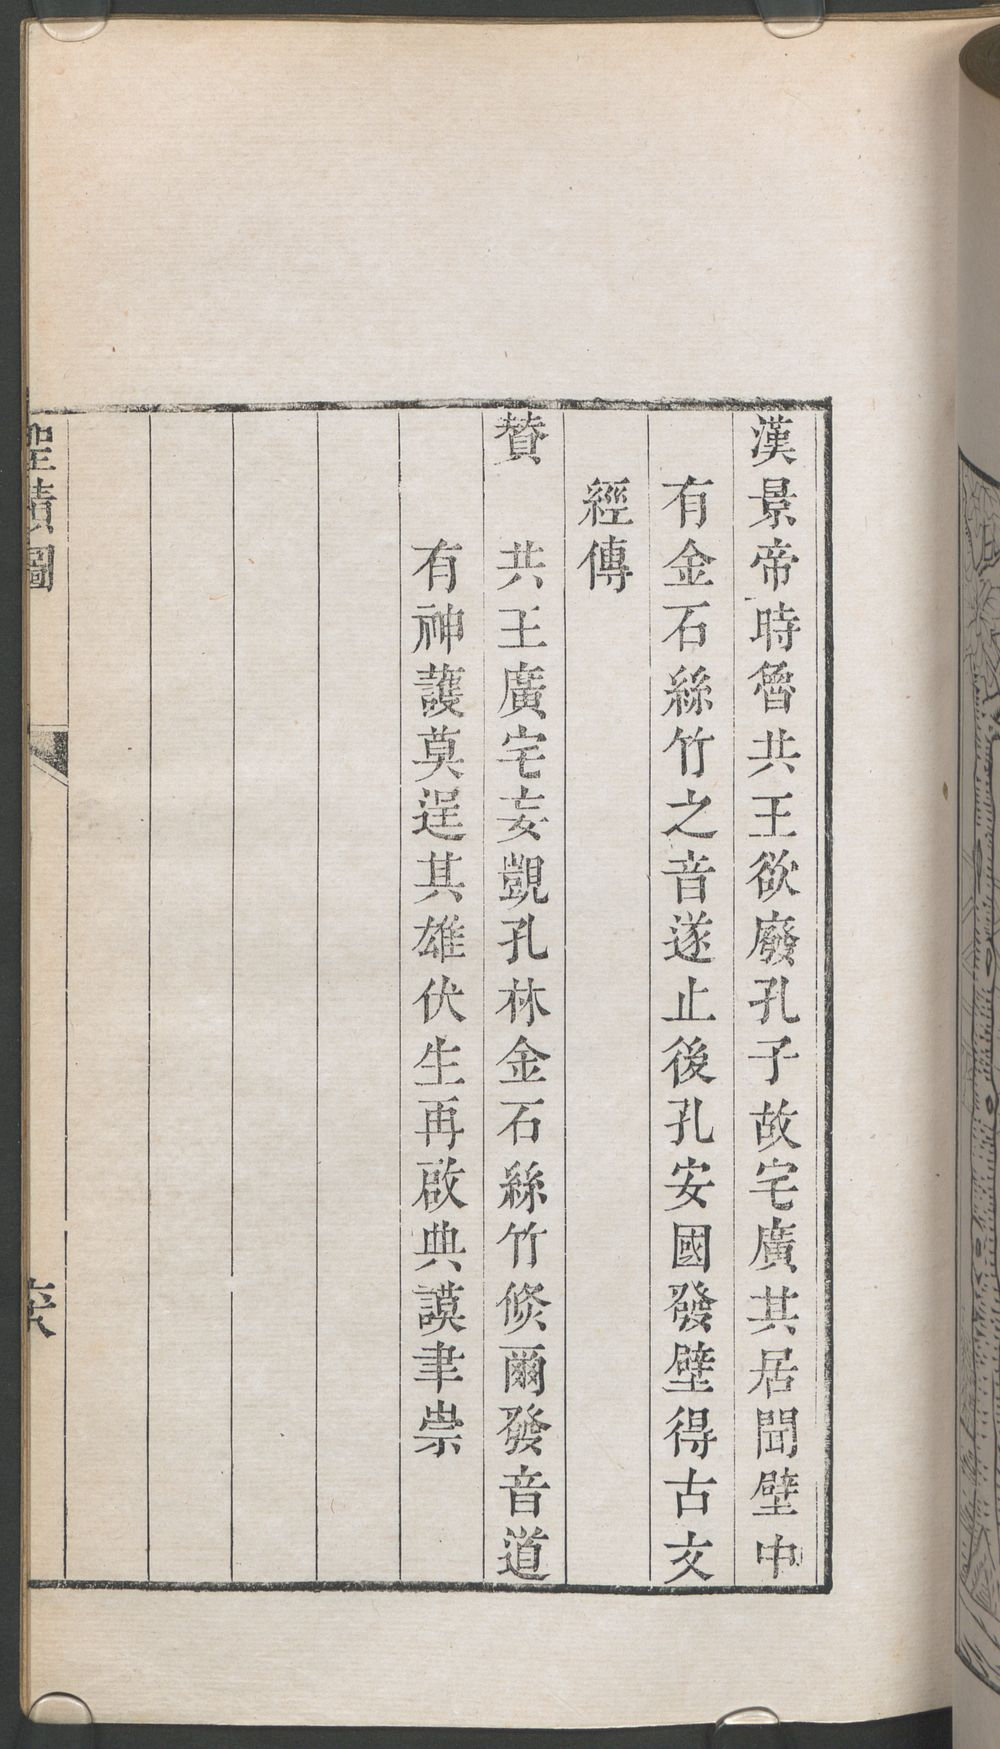 漢景帝時魯共王欲廢孔子故宅廣其居聞壁中
有金石絲竹之音遂止後孔安國發壁得古文
經傳
贊　共王廣宅妄覬孔林金石絲竹倏爾發音道
有神護莫逞其雄伏生再啟典謨聿崇
聖蹟圖